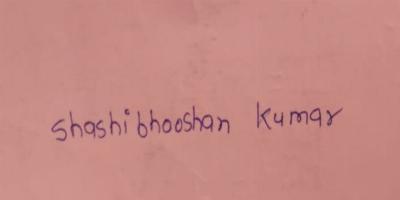 Shashibhooshan Kumar